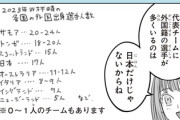 2023年W杯時の
各国の外国出身選手人数
サモア…20〜24人
トンガ…18〜20人
スコットランド…15人
日本…17人
オーストラリア…11人
イタリア…9人
ウェールズ…9人
ニュージーランド…5人
※0〜1人のチームもあります
代表チームに
外国籍の選手が
多くいるのは
日本だけじゃ
ないからね